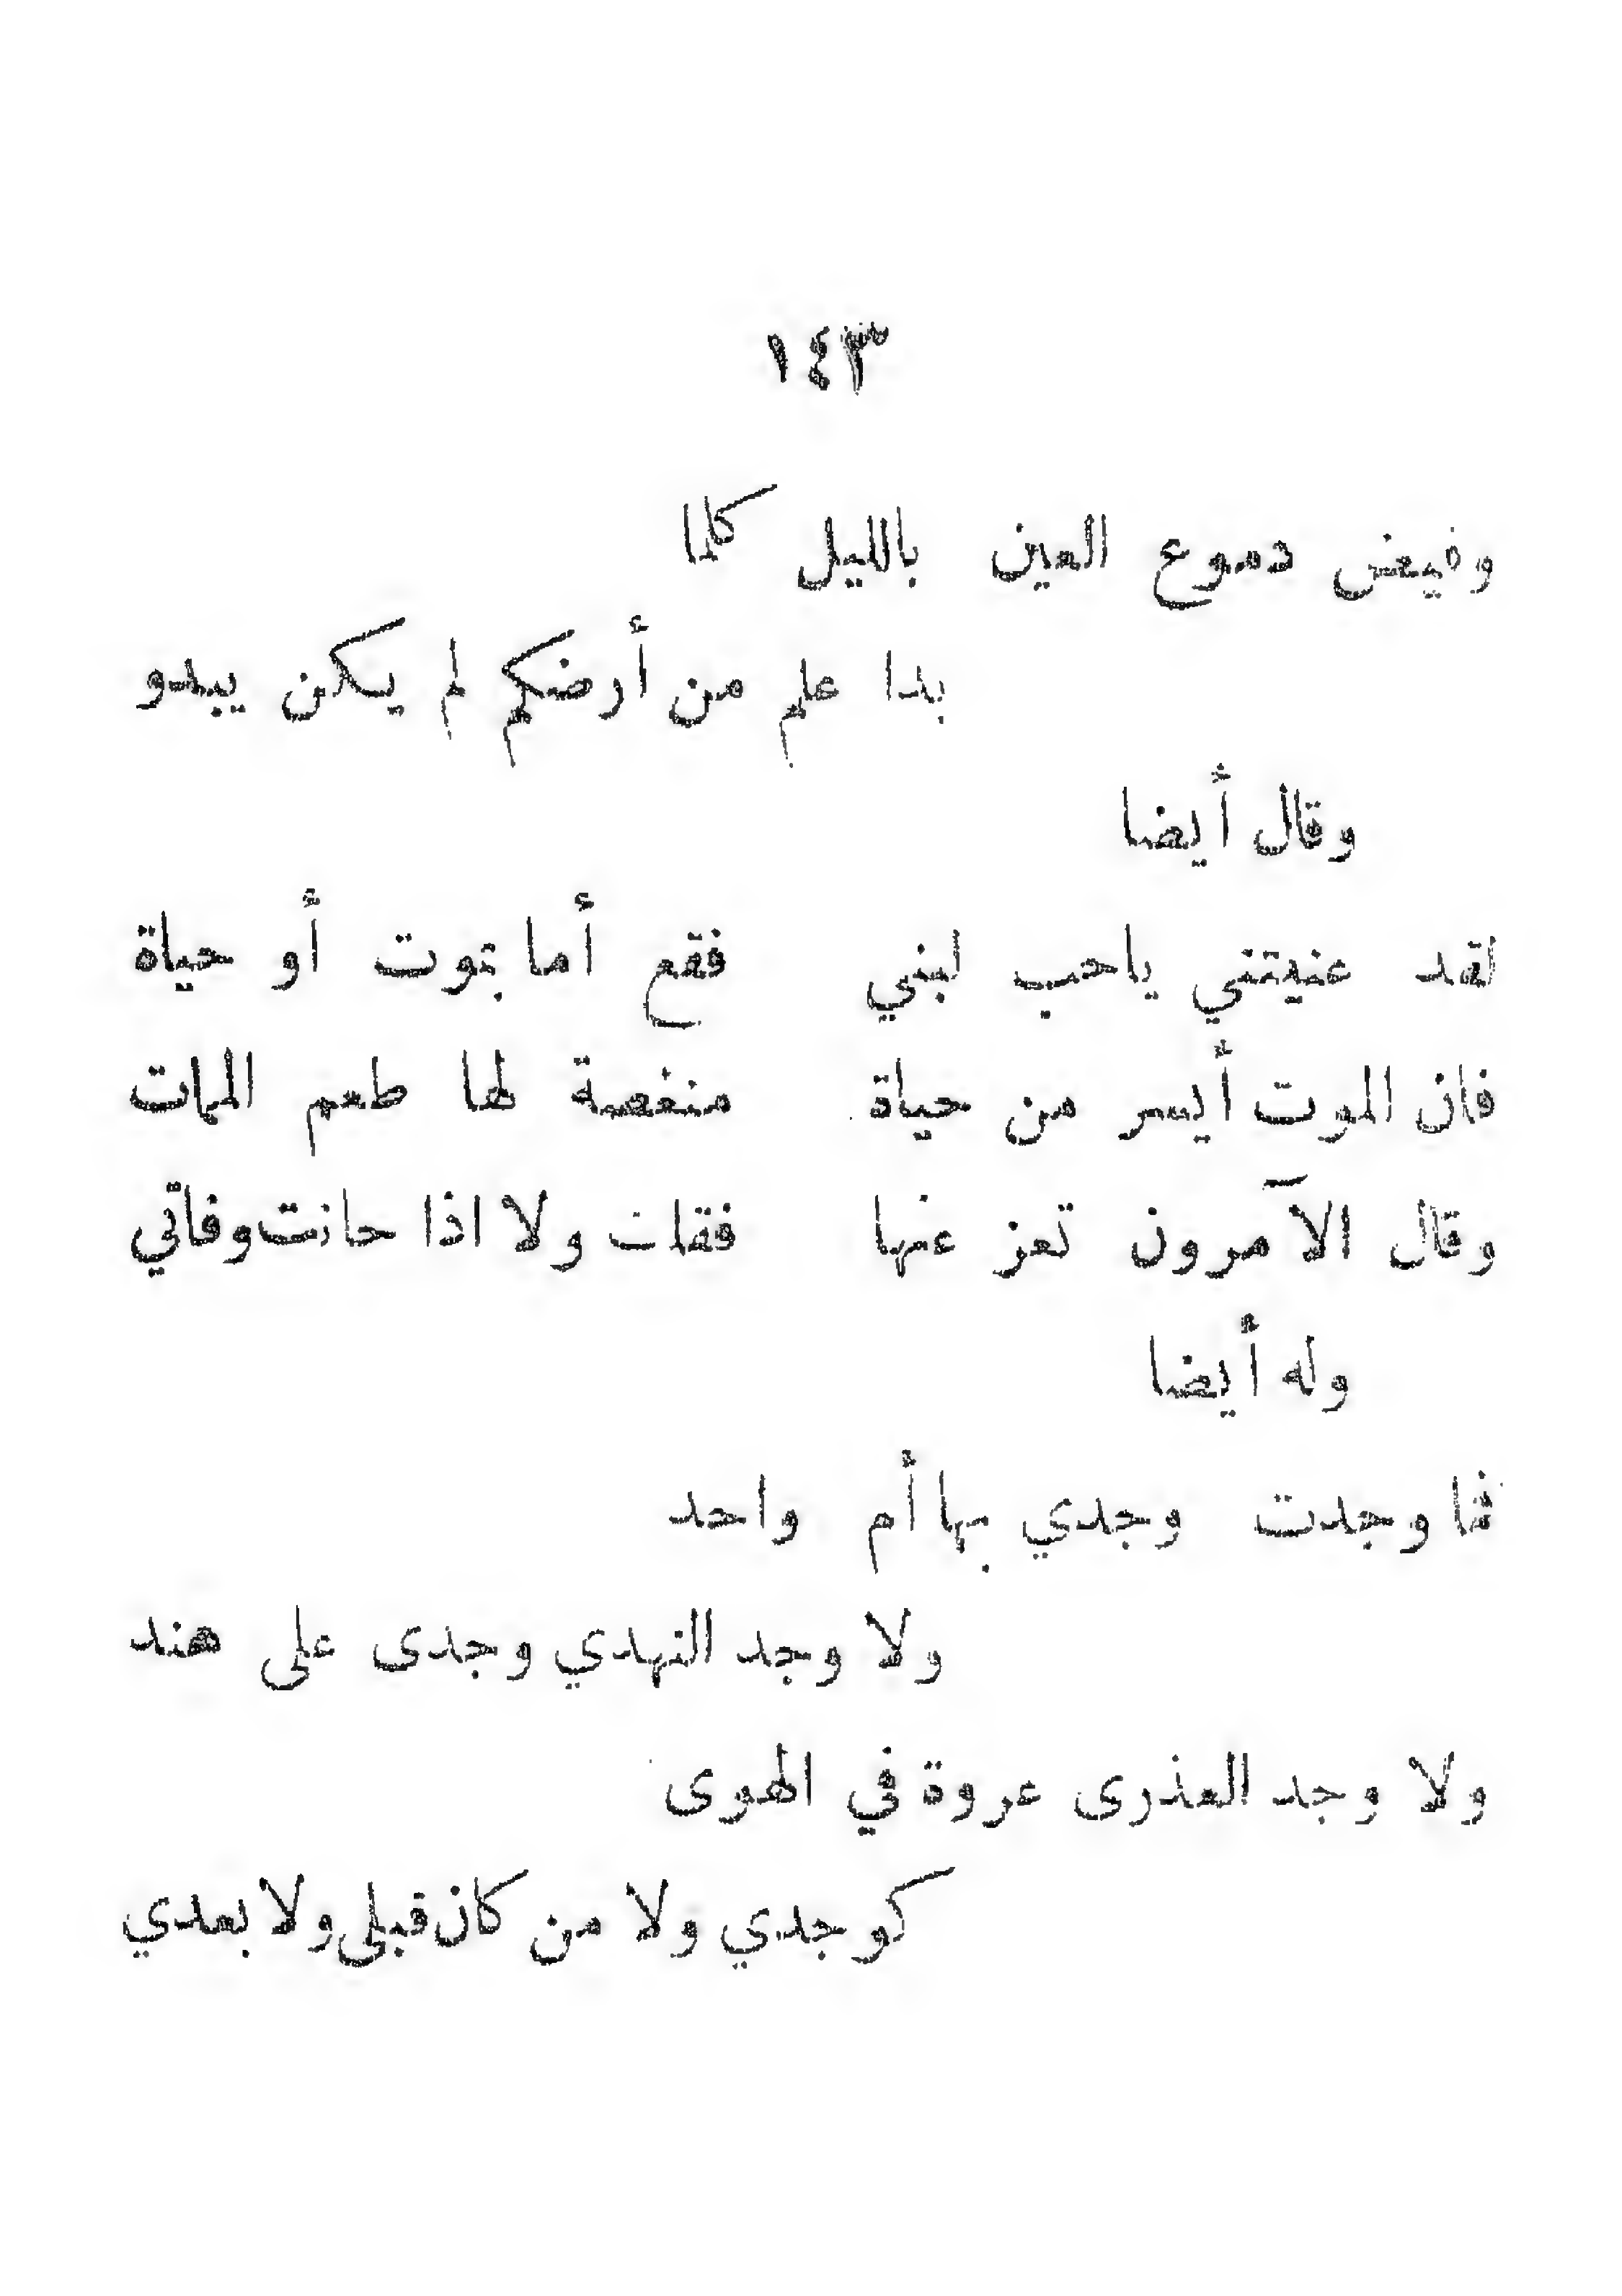 ١٤٣
وفيض دموع العين بالليل كلما
بدا علم من أرضكم لم يكن يبدو
وقال أيضا
لقد عنيتني ياحب لبني فقع أما بموت أو حياة
فان الموت أيسر من حياة منغصة لها طعم الممات
وقال الآمرون تعز عنها فقلت ولا اذا حانت وفاتي
وله أيضا
فما وجدت وجدي بها أم واحد
ولا وجد النهدي وجدى على هند
ولا وجد العذرى عروة في الهوى
كوجدي ولا من كان قبلى ولا بعدي